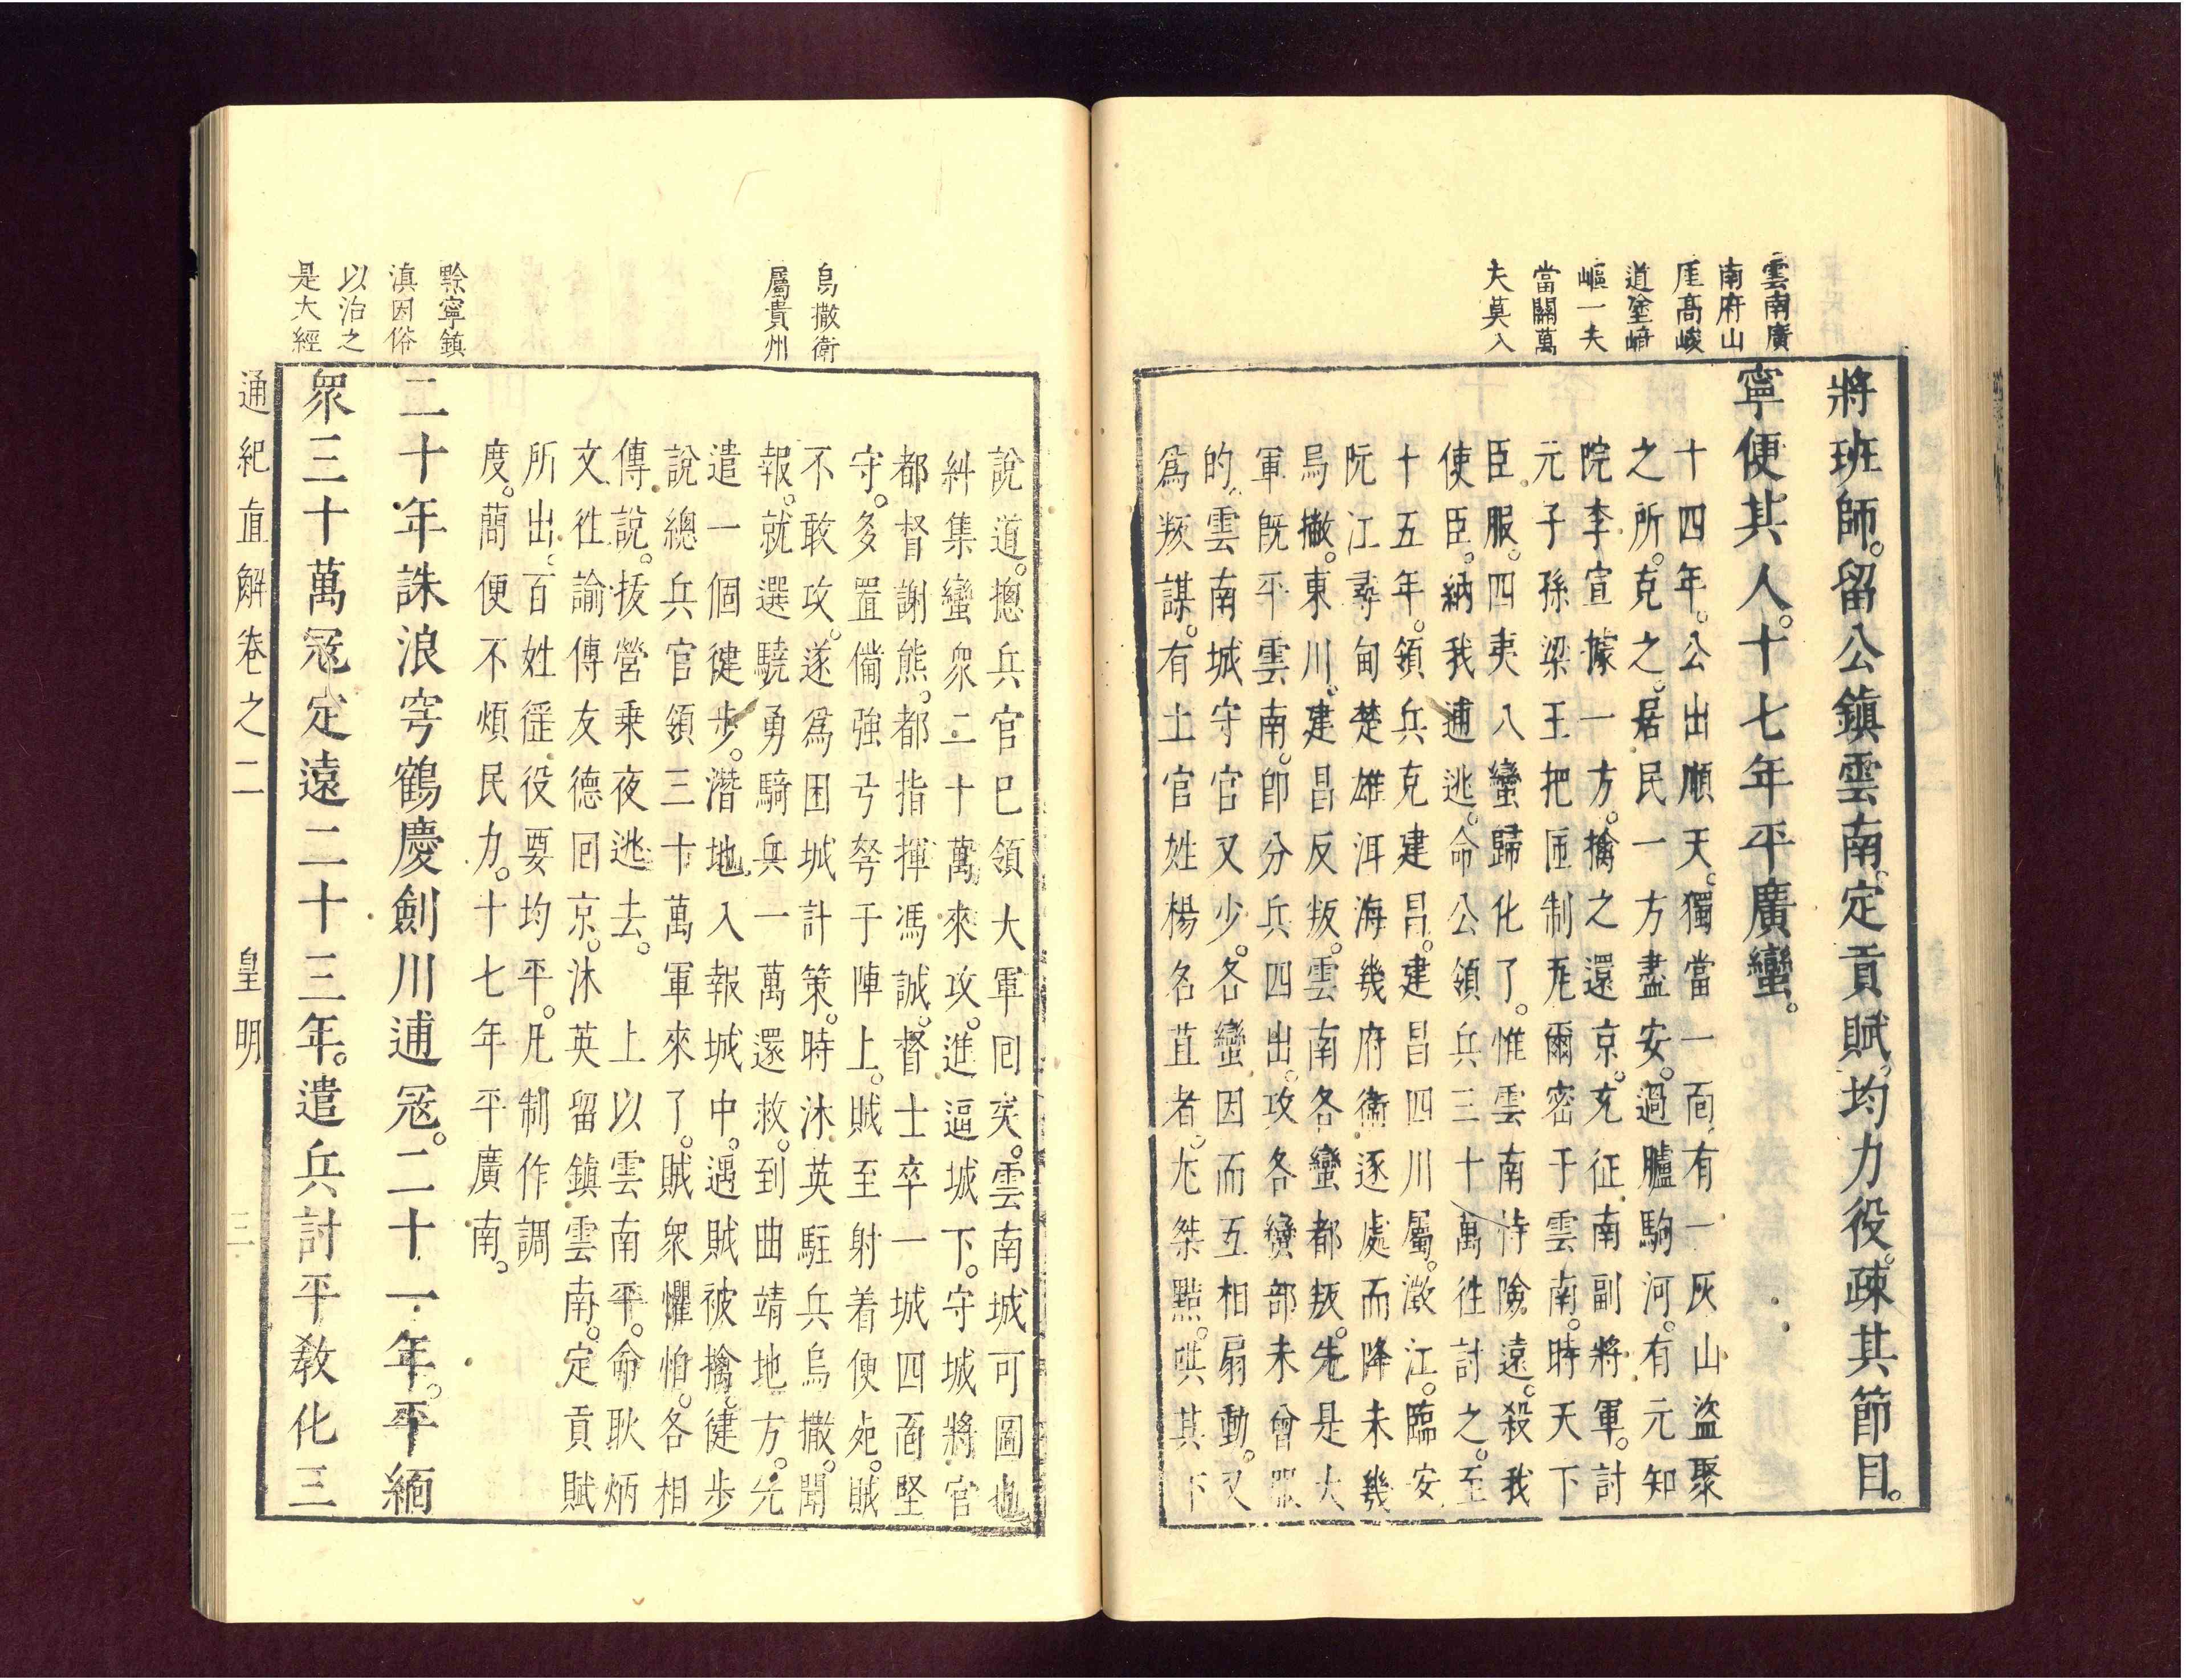 雲南廣
南府山
崖高峻
道塗崎
嶇一夫
當關萬
夫莫入
將班師。留公鎮雲南。定貢賦。均力役。疎其節目。
寧便其人。十七年平廣蠻。
十四年。公出順天。獨當一面。有一灰山盜聚
之所。克之。居民一方盡安。過臚駒河。有元知
院李宣據一方。擒之還京。充征南副將軍。討
元子孫。梁王把匝剌瓦爾密于雲南。時天下
臣服。四夷八蠻歸化了。惟雲南恃險遠。殺我
使臣。納我逋逃。命公領兵三十萬徃討之。至
十五年。領兵克建昌。建昌四川屬。澂江。臨安
阮江尋甸楚雄洱海幾府衞逐處而降未幾
烏撒。東川。建昌反叛。雲南各蠻都叛。先是大
軍旣平雲南。卽分兵四出。攻各蠻部未曾服
的。雲南城守官又少。各蠻因而互相扇動。又
爲叛謀。有土官姓楊名苴者。尤桀黠。哄其下
烏撒衛
屬貴州
說道。摠兵官已領大軍囘矣。雲南城可圖也。
糾集蠻衆二十萬來攻。進逼城下。守城將官
都督謝熊。都指揮馮誠。督士卒一城四面堅
守。多置備強弓弩于陣上。賊至射着便死。賊
不敢攻。遂爲困城計策。時沐英駐兵烏撒。聞
報。就選驍勇騎兵一萬還救。到曲靖地方。先
遣一個健步。潛地入報城中。遇賊被擒。健步
說總兵官領三十萬軍來了。賊衆懼怕。各相
傳說。拔營乗夜逃去。　上以雲南平。命耿炳
文徃諭傳友德囘京。沐英留鎮雲南。定貢賦
所出。百姓徭役要均平。凡制作調
度。蕳便不煩民力。十七年平廣南。
黔寧鎮
滇因俗
以治之
是大經
二十年誅浪穹鶴慶劍川逋冦。二十一年。平緬
衆三十萬冦定遠二十三年。遣兵討平敎化三
通紀直解卷之二　皇明　三